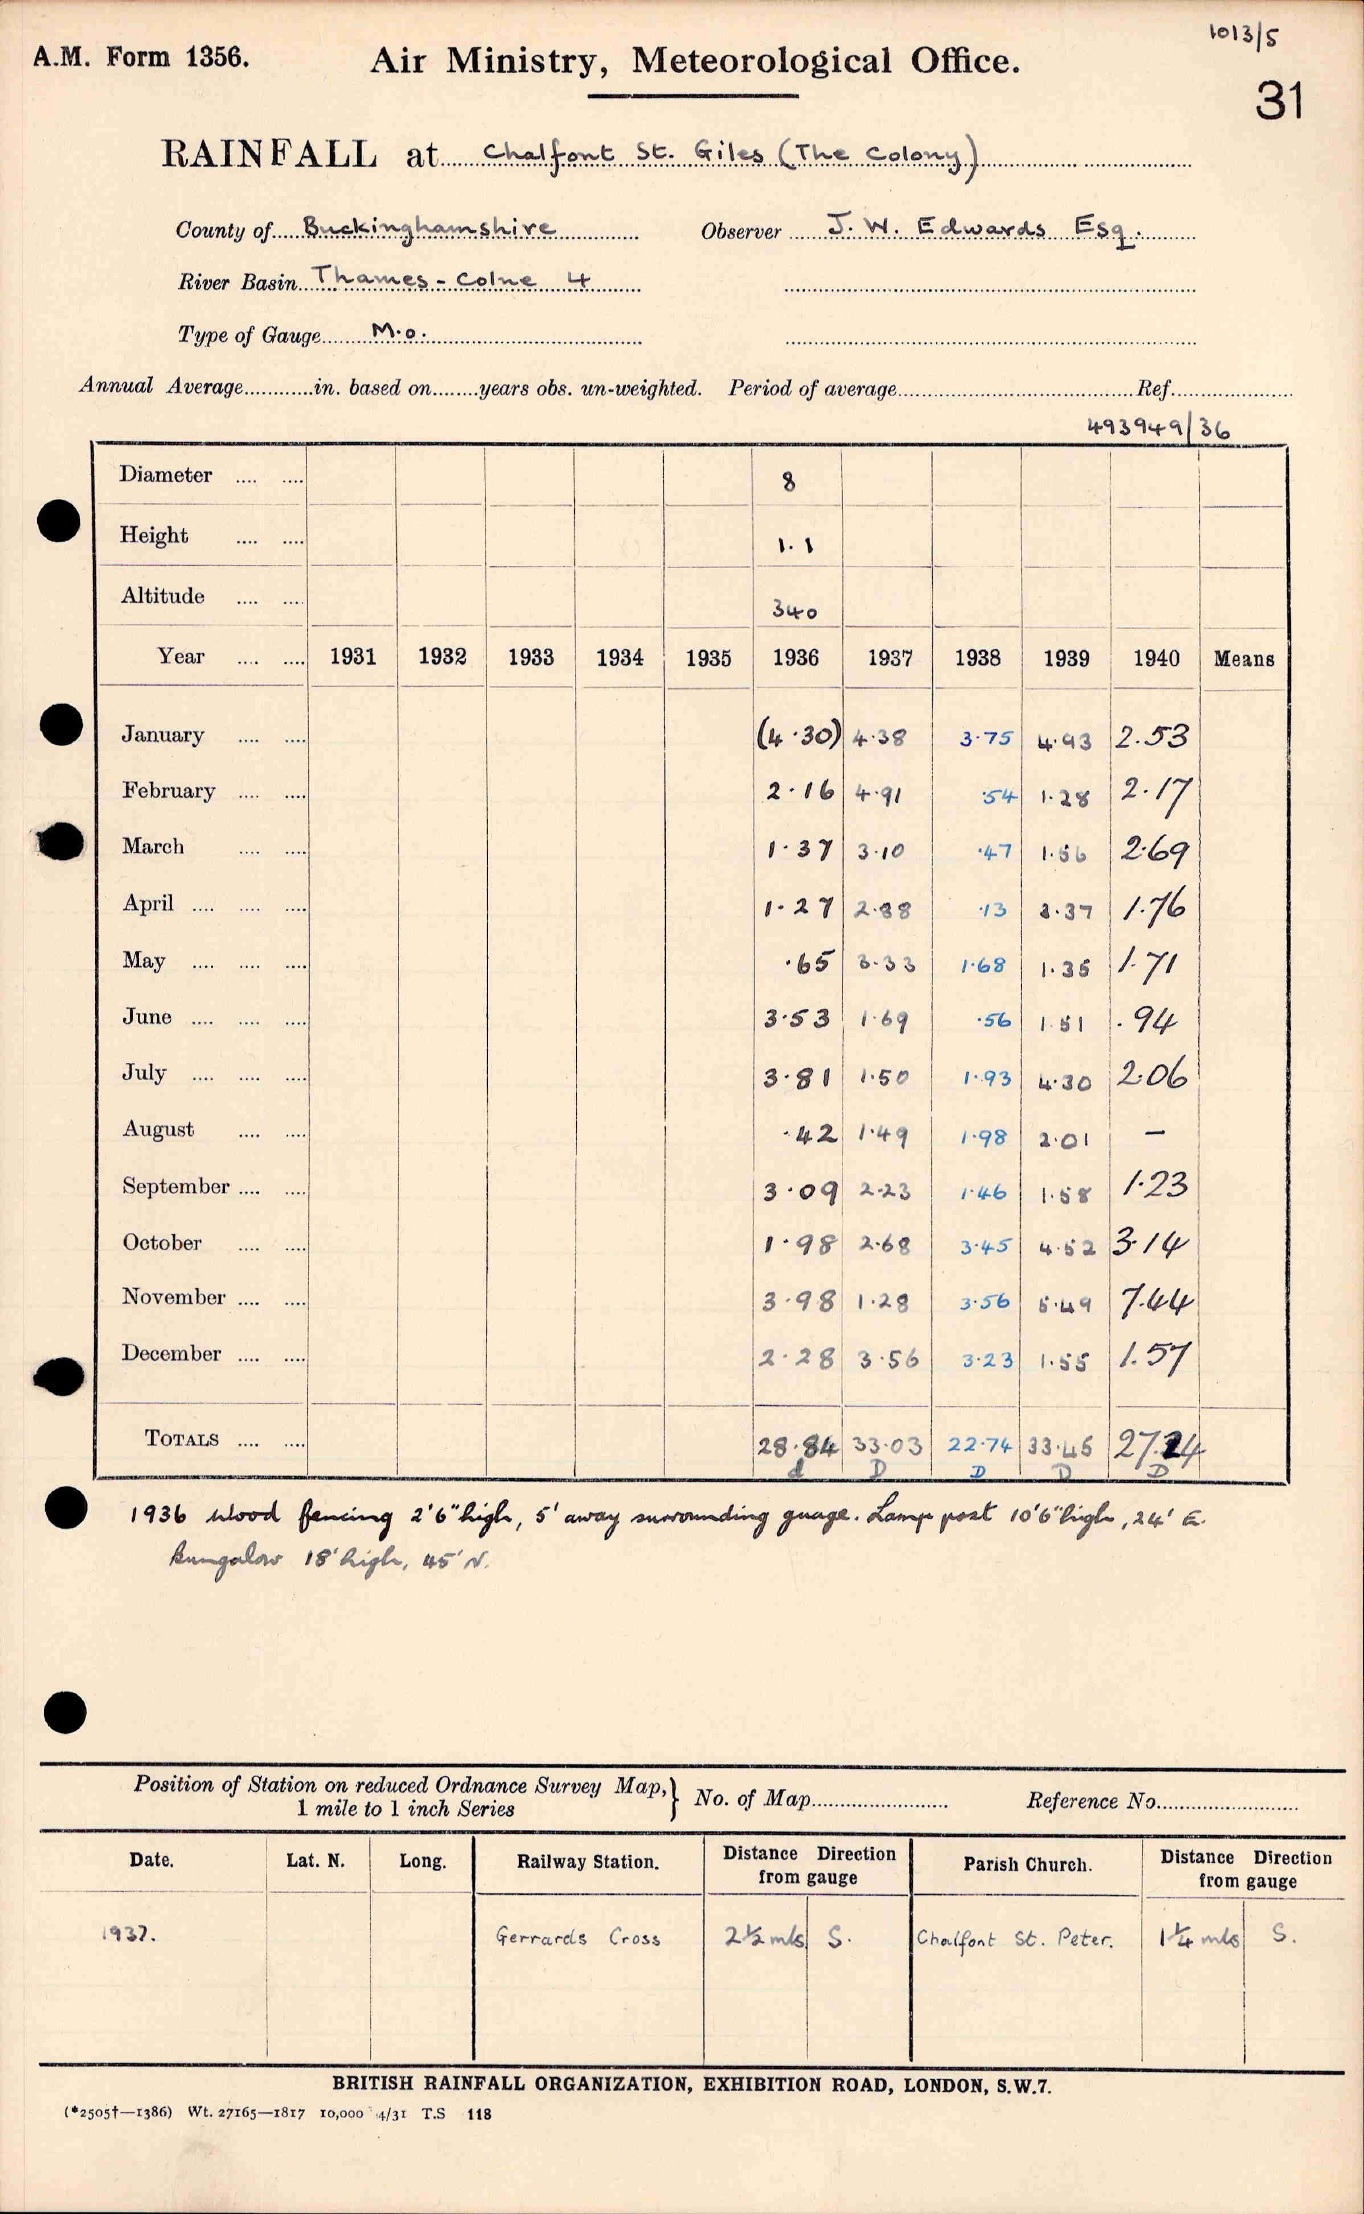 1013/5
A.M. Form 1356. Air Ministry, Meteorological Office.
31
RAINFALL at Chalfont St. Giles (The Colony)
County of Buckinghamshire Observer J. W. Edwards Esq.
River Basin Thames - Colne 4
Type of Gauge M.O.
Annual Average in. based on years obs. un-weighted. Period of average Ref.
493949/36
Diameter 8
Height 1.1
Altitude 340
Year 1931 1932 1933 1934 1935 1936 1937 1938 1939 1940 Means
January (4.30) 4.38 3.75 4.93 2.53
February 2.16 4.91 .54 1.28 2.17
March 1.37 3.10 .47 1.56 2.69
April 1.27 2.88 .13 3.37 1.76
May .65 3.33 1.68 1.35 1.71
June 3.53 1.69 .56 1.51 .94
July 3.81 1.50 1.93 4.30 2.06
August .42 1.49 1.98 2.01 —
September 3.09 2.23 1.46 1.58 1.23
October 1.98 2.68 3.45 4.52 3.14
November 3.98 1.28 3.56 5.49 7.44
December 2.28 3.56 3.23 1.55 1.57
TOTALS 28.84 33.03 22.74 33.45 27.24
d D D D D
1936 Wood fencing 2'6" high, 5' away surrounding guage. Lamp post 10'6" high, 24' E.
Bungalow 18' high, 45' N.
Position of Station on reduced Ordnance Survey Map, } No. of Map Reference No.
1 mile to 1 inch Series
Date. Lat. N. Long. Railway Station. Distance Direction from gauge Parish Church. Distance Direction from gauge
1937. Gerrards Cross 2½ mls S. Chalfont St. Peter. 1¼ mls S.
BRITISH RAINFALL ORGANIZATION, EXHIBITION ROAD, LONDON, S.W.7.
(*2505†—1386) Wt. 27165—1817 10,000 4/31 T.S 118